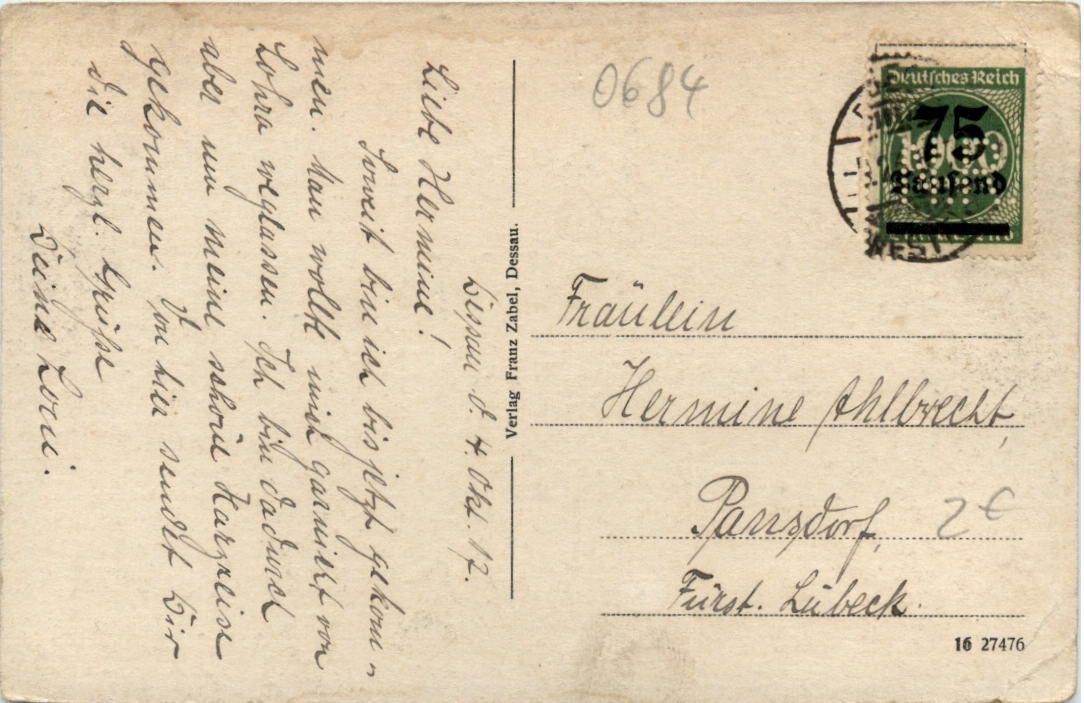 Liebe Hermine!
Soweit bin ich bis jetzt gekom-
men. Man wollte mich garnicht von
Lohra weglassen. Ich bin dadurch
aber um meine schöne Harzreise
gekommen. Von hier sendet Dir
die herzl. Grüsse
Deine
d. 4. Okt.
Verlag Franz Zabel, Dessau.
0684
Deutsches Reich
75
1000
Tausend
WEST
Fräulein
Hermine Ahlbrecht,
Pansdorf,
Fürst. Lübeck.
2€
16 27476